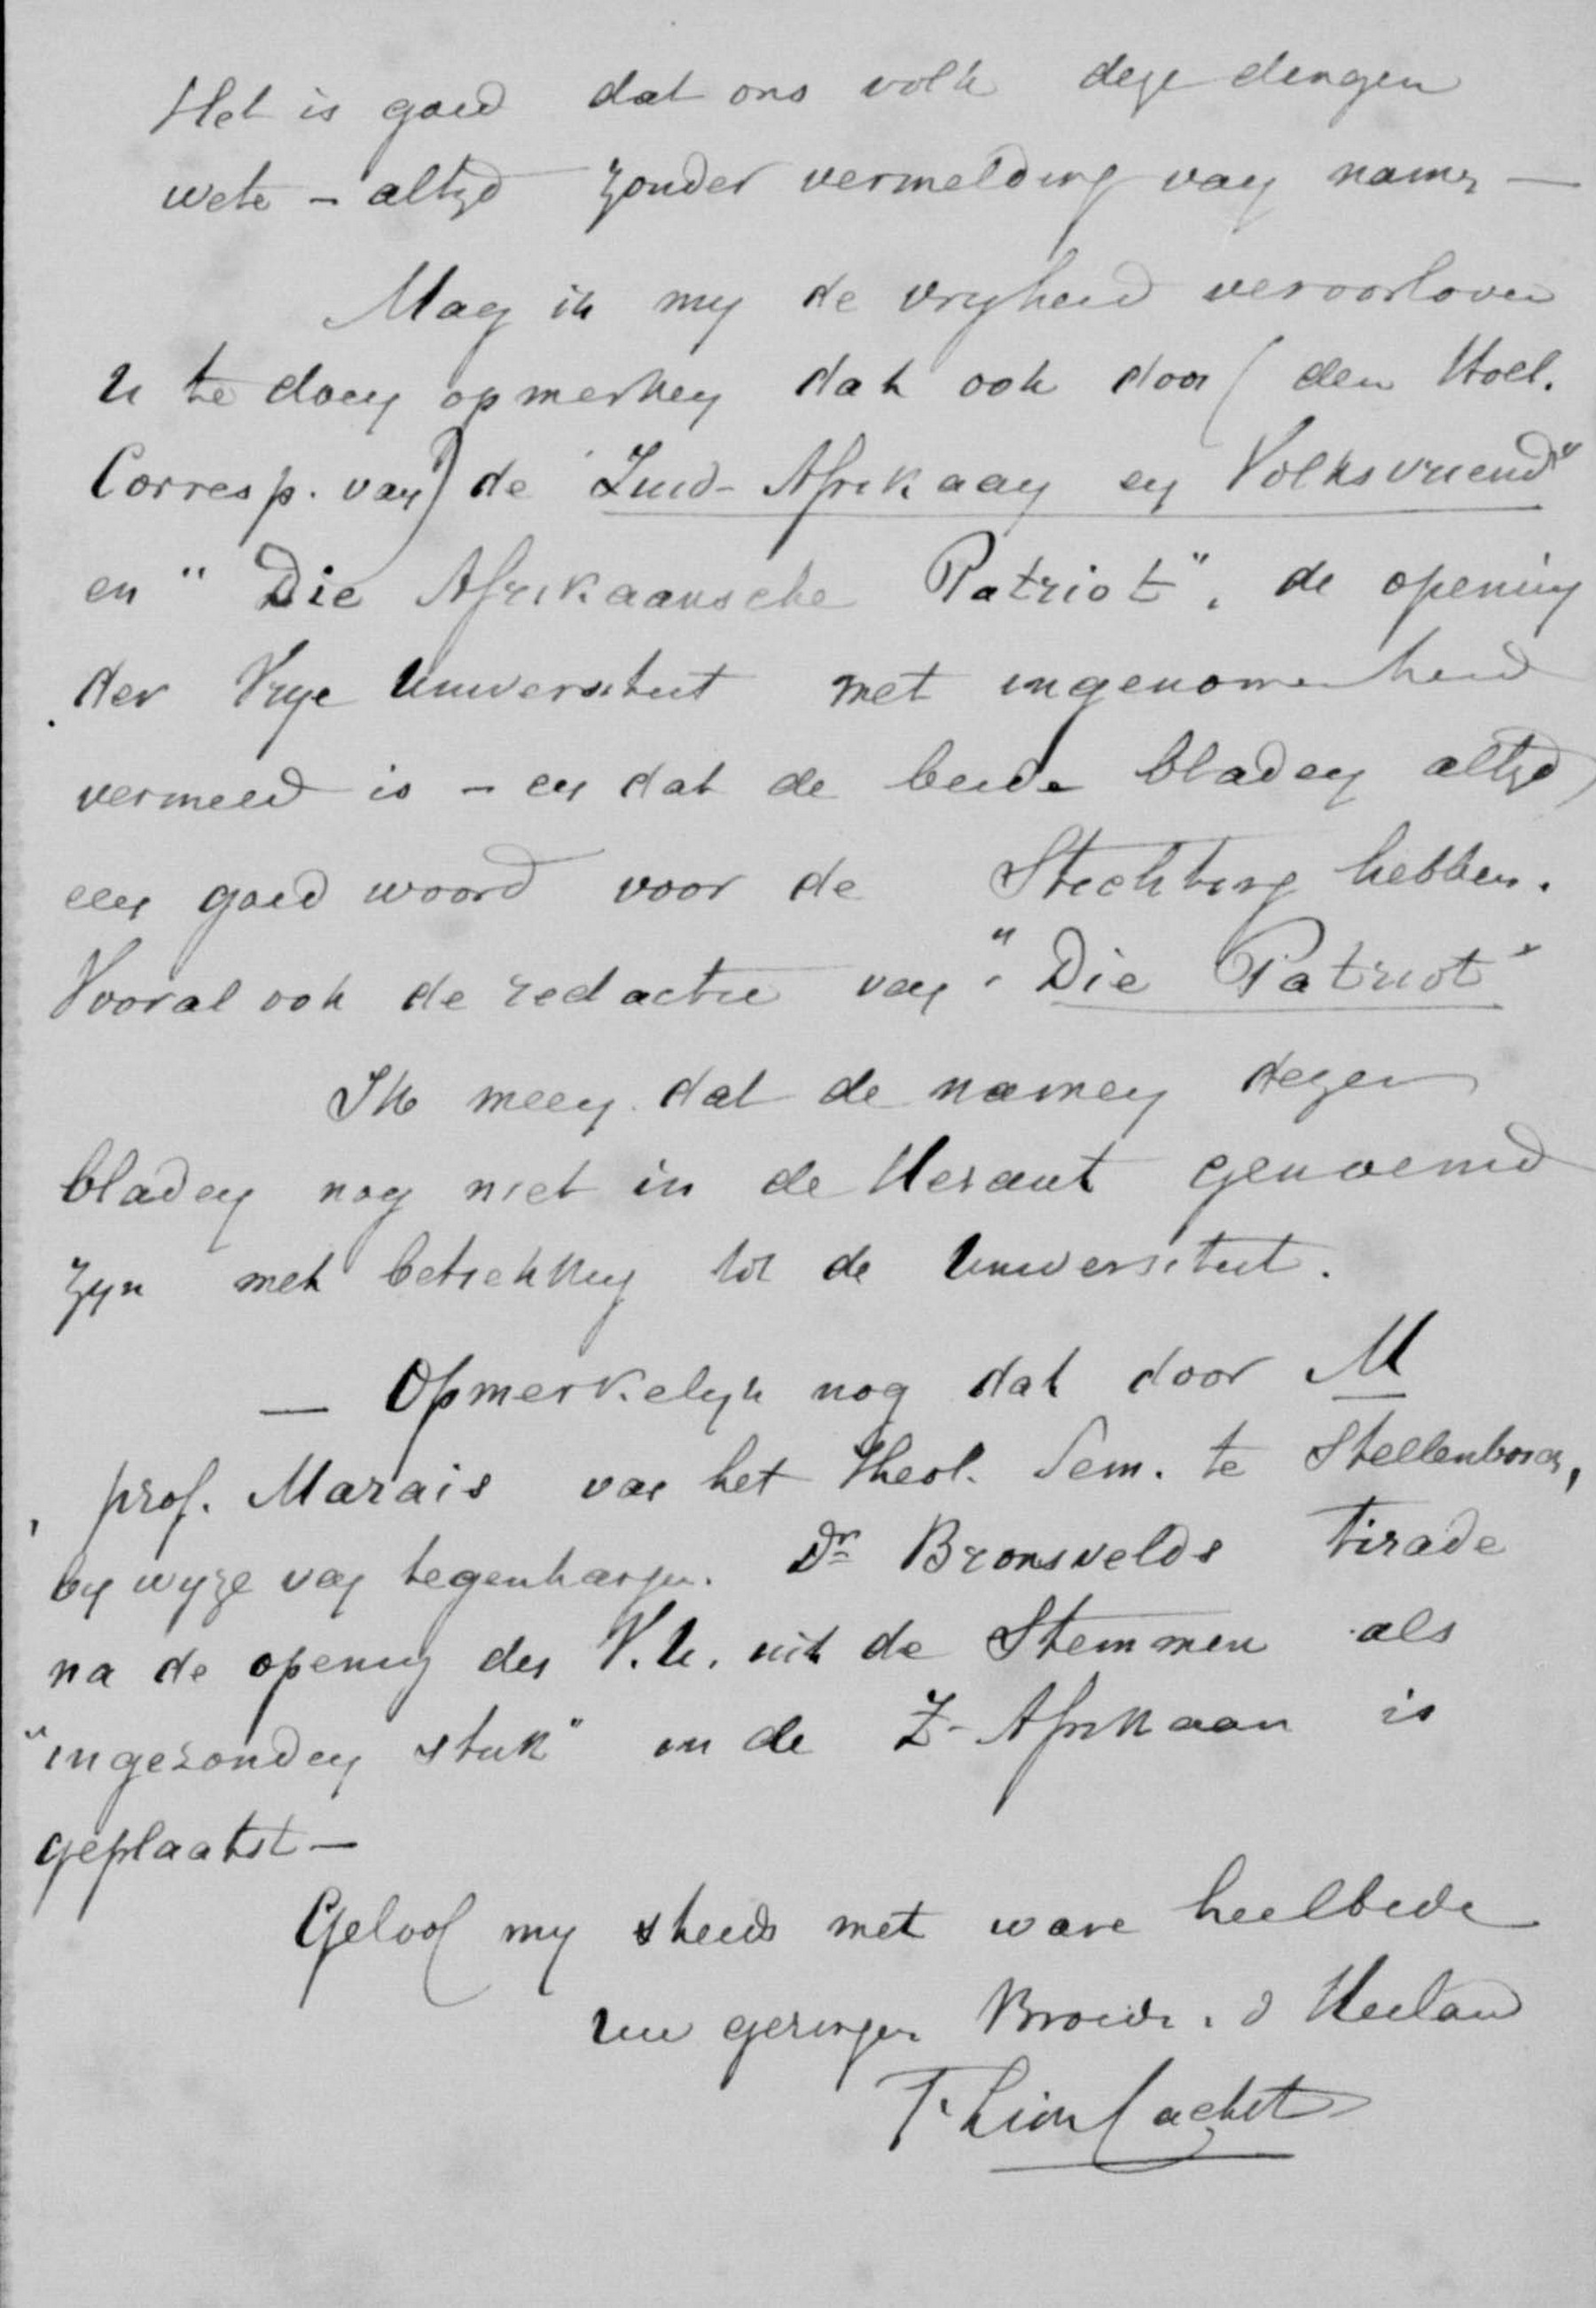 Het is goed dat ons volk deze dingen
wete – altyd zonder vermelding van namen —
Mag ik my de vryheid veroorloven
U te doen opmerken dat ook door (den Holl.
Corresp. van) de "Zuid-Afrikaan en Volksvriend"
en "Die Afrikaansche Patriot", de opening
der Vrye Universiteit met ingenomenheid
vermeld is – en dat de beide bladen altyd
een goed woord voor de Stichting hebben.
Vooral ook de redactie van "Die Patriot"
Ik meen dat de namen dezer
bladen nog niet in de Heraut genoemd
zyn met betrekking tot de Universiteit.
— Opmerkelyk nog dat door M
prof. Marais van het Theol. Sem. te Stellenbosch,
by wyze van Dr Bronsvelds tirade
na de opening der V.U. uit de Stemmen als
"ingezonden stuk" in de Z-Afrikaan is
geplaatst —
Geloof my steeds met ware heelbede
Uw geringen Broeder i. d Heiland
F. Lion Cachet